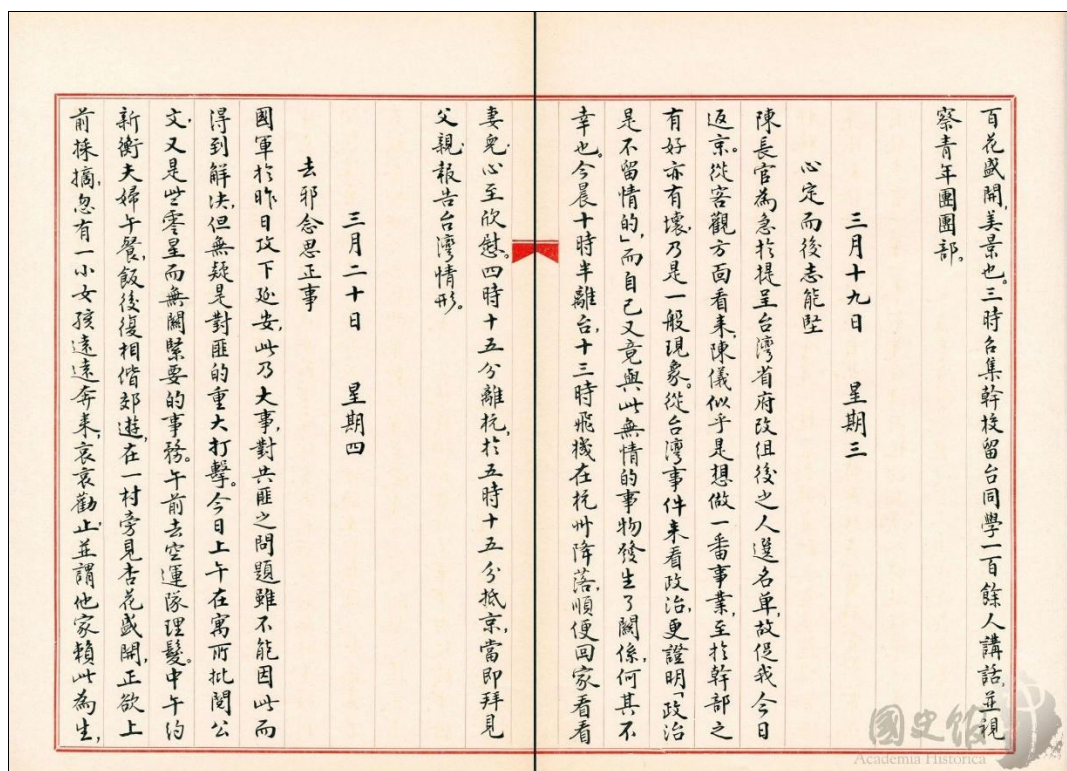 百花盛開,美景也。三時召集幹校留台同學一百餘人講話,並視
察青年團團部。
三月十九日 星期三
心定而後志能堅
陳長官為急於提呈台灣省府改組後之人選名单,故促我今日
返京。從客觀方面看来,陳儀似乎是想做一番事業,至於幹部之
有好亦有壞,乃是一般現象。從台灣事件来看政治,更證明「政治
是不留情的」而自己又竟與此無情的事物發生了關係,何其不
幸也。今晨十時半離台,十三時飛機在杭州降落,順便回家看看
妻兒,心至欣慰。四時十五分離杭,於五時十五分抵京,當即拜見
父親,報告台灣情形。
三月二十日 星期四
去邪念思正事
國軍於昨日攻下延安,此乃大事,對共匪之問題雖不能因此而
得到解決,但無疑是對匪的重大打擊。今日上午在寓所批閱公
文,又是些零星而無關緊要的事務。午前去空運隊理髮。中午約
新衡夫婦午餐,飯後復相偕郊遊,在一村旁見杏花盛開,正欲上
前採摘,忽有一小女孩遠遠奔来,哀哀勸止,並謂他家賴此為生,
國史館
Academia Historica